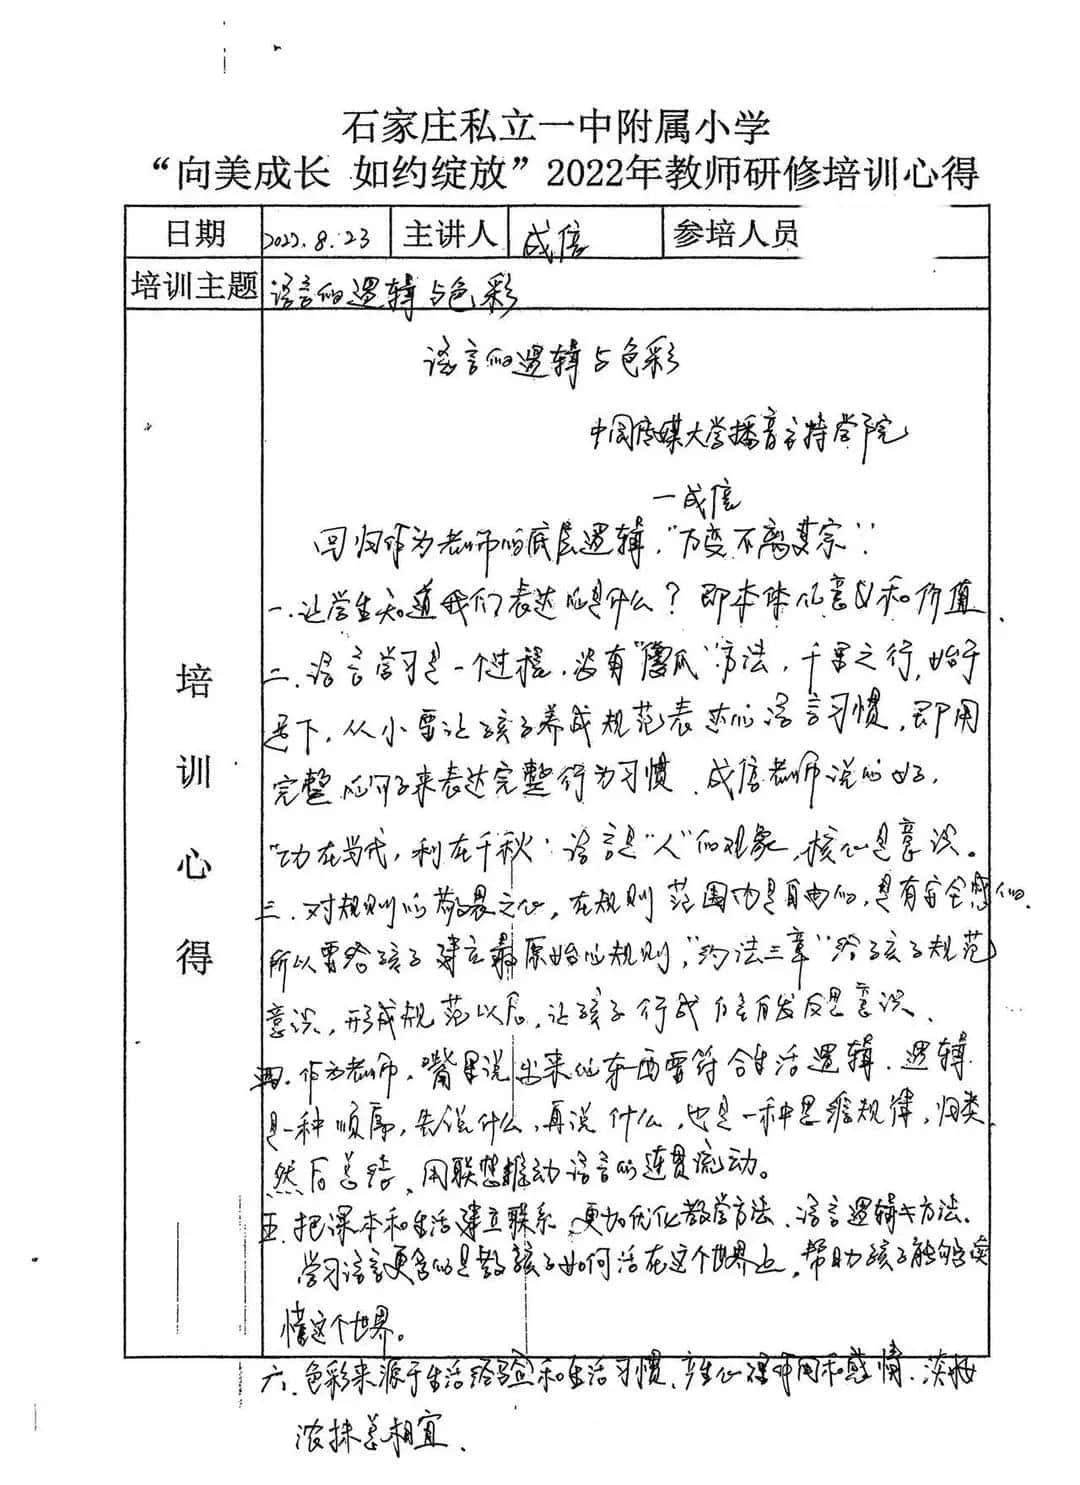 石家庄私立一中附属小学
“向美成长 如约绽放”2022年教师研修培训心得
日期 2022.8.23 主讲人 成倍 参培人员
培训主题 语言的逻辑与色彩
培训心得
语言的逻辑与色彩
中国传媒大学播音主持学院
—成倍
回归作为老师的底层逻辑，“万变不离其宗”：
一.让学生知道我们表达的是什么？即本体的意义和价值.
二.语言学习是一个过程，没有“傻瓜”方法，千里之行，始于
足下，从小要让孩子养成规范表达的语言习惯，即用
完整的句子来表达完整行为习惯.成倍老师说的好，
“功在当代，利在千秋：语言是“人”的现象，核心是意识。
三.对规则的敬畏之心，在规则范围内是自由的，是有安全感的.
所以要给孩子建立最原始的规则，“约法三章”给孩子规范
意识，形成规范以后，让孩子行成自自发反思意识.
四.作为老师，嘴里说出来的东西要符合生活逻辑.逻辑
是一种顺序，先说什么，再说什么，也是一种思维规律，归类，
然后总结，用联想推动语言的连贯流动。
五.把课本和生活建立联系，更加优化教学方法、语言逻辑与方法.
学习语言更多的是教孩子如何活在这个世界上，帮助孩子能够读
懂这个世界。
六.色彩来源于生活经验和生活习惯，产生心理作用和感情.淡妆
浓抹总相宜.